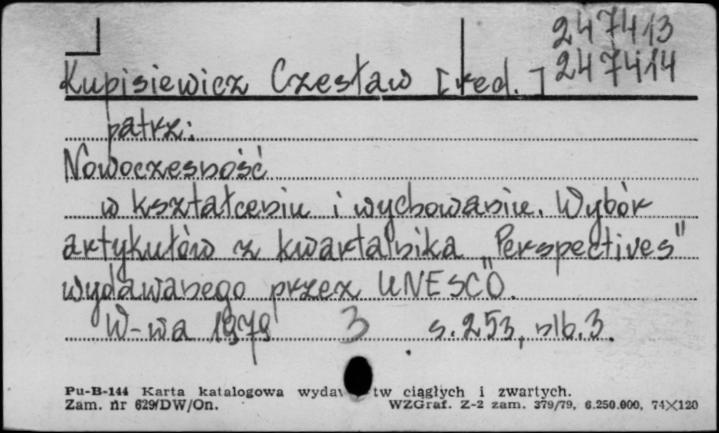 247413
Kupisiewicz Czesław [red.] 247414
patrz:
Nowoczesność
w kształceniu i wychowaniu. Wybór
artykułów z kwartalnika "Perspectives"
wydawanego przez UNESCO.
W-wa 1979 3 s. 253, nlb. 3.
Pu-B-144 Karta katalogowa wydaw tw ciągłych i zwartych.
Zam. nr 629/DW/On. WZGraf. Z-2 zam. 379/79, 6.250.000, 74×120